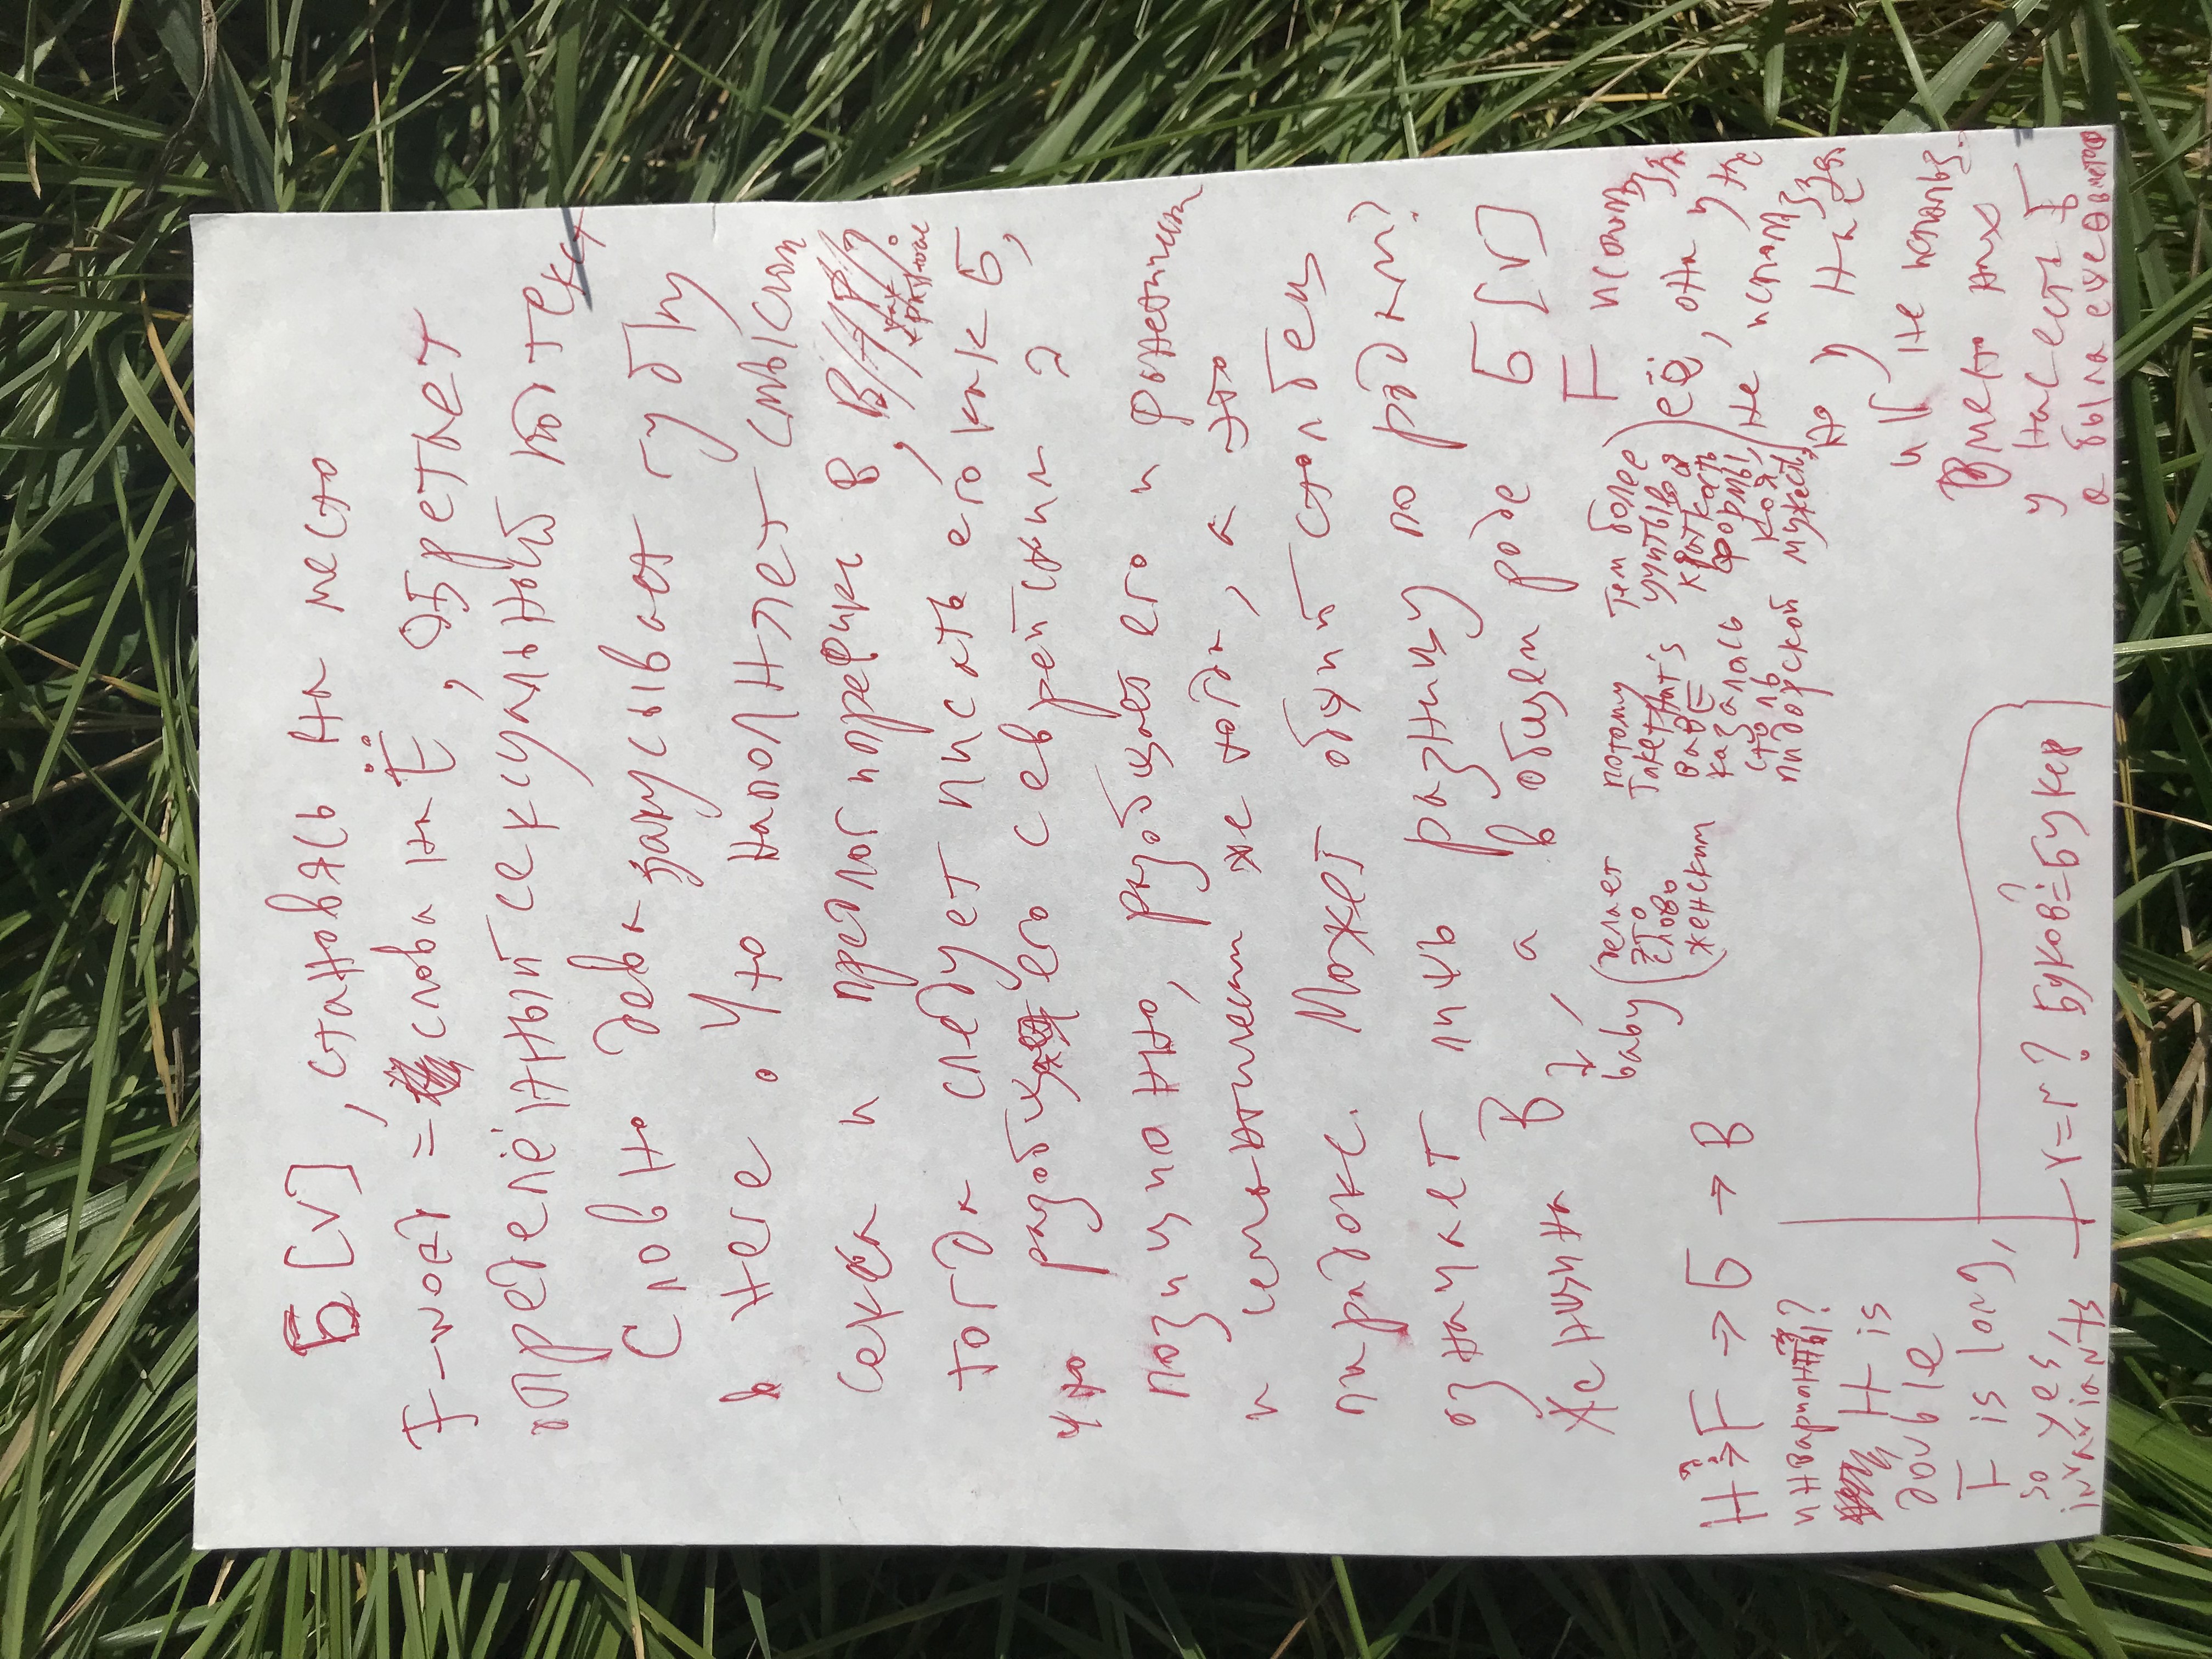 Б [v], становясь на место
F-word = слова на Ё, обретает
определённый сексуальный подтекст
Словно дева закусывает губку
в неге. Что наполняет смыслом
секса и предлог и префикс В, В/Н/Ф/?
как
тогда следует писать его как Б,
что разобщает его с еврейским ב
позиционно, разобщает его и фонетически
и семантически же тогда, а это
парадокс. Может общий столбец
означает лишь разницу по родам?
Женщина B, а в общем роде Б [v]
baby (делает это слово женским
потому Take That's BABE казалась столь пидорской
тем более учитывая краткость формы, коя мужеств.)
F использ
её, они у
не использ
но у нас
и V не использ.
Вместо них
у нас есть Б
а была ещё Ѳ вместо Ф
H ?→ F → Б → В
инварианты?
H is
double
F is long,
so yes,
invariants
r=r? Буков ?= Букер